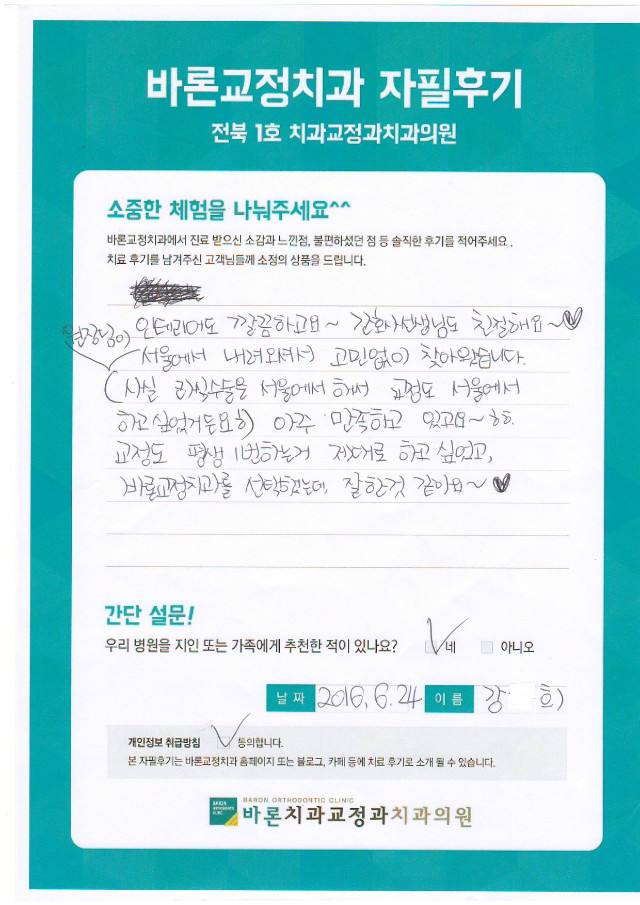 바론교정치과 자필후기
전북 1호 치과교정과치과의원
소중한 체험을 나눠주세요^^
바론교정치과에서 진료 받으신 소감과 느낀점, 불편하셨던 점 등 솔직한 후기를 적어주세요 .
치료 후기를 남겨주신 고객님들께 소정의 상품을 드립니다.
인테리어도 깔끔하고요~ 간호사선생님도 친절해요~♥
원장님이 서울에서 내려오셔서 고민없이 찾아왔습니다.
(사실 라식수술을 서울에서 해서 교정도 서울에서
하고싶었거든요ㅎ) 아주 만족하고 있고요~ㅎㅎ.
교정도 평생 1번하는거 제대로 하고싶었고,
바론교정치과를 선택했는데, 잘한것 같아요~♥
간단 설문!
우리 병원을 지인 또는 가족에게 추천한 적이 있나요? 네 아니오
날 짜 2016. 6. 24 이 름 강
개인정보 취급방침 동의합니다.
본 자필후기는 바론교정치과 홈페이지 또는 블로그, 카페 등에 치료 후기로 소개 될 수 있습니다.
BARON ORTHODONTIC CLINIC
BARON ORTHODONTIC CLINIC 바론치과교정과치과의원